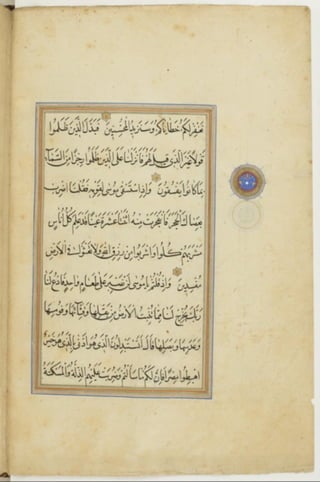 نغفر لكم خطاياكم وسنزيد المحسنين فبدل الذين ظلموا
قولا غير الذي قيل لهم فانزلنا على الذين ظلموا رجزا من السماء
بما كانوا يفسقون واذ استسقى موسى لقومه فقلنا اضرب
بعصاك الحجر فانفجرت منه اثنتا عشرة عينا قد علم كل اناس
مشربهم كلوا واشربوا من رزق الله ولا تعثوا في الارض
مفسدين واذ قلتم يا موسى لن نصبر على طعام واحد فادع لنا
ربك يخرج لنا مما تنبت الارض من بقلها وقثائها وفومها
وعدسها وبصلها قال اتستبدلون الذي هو ادنى بالذي هو خير
اهبطوا مصرا فان لكم ما سألتم وضربت عليهم الذلة والمسكنة